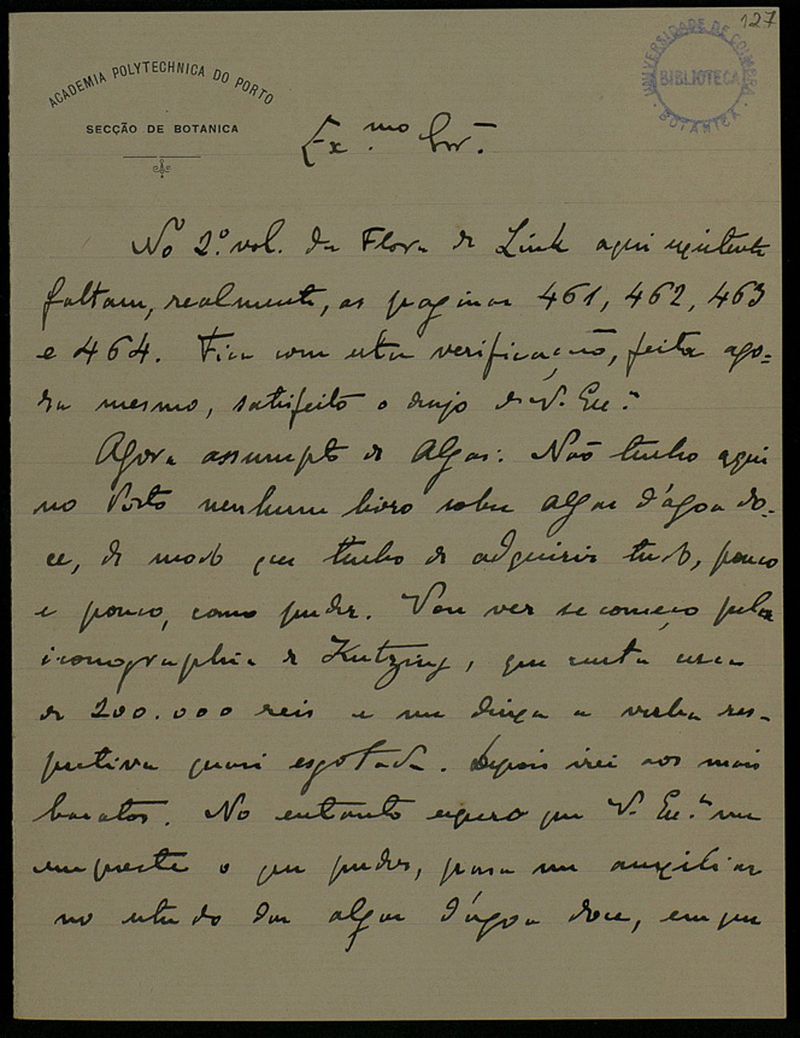 127
ACADEMIA POLYTECHNICA DO PORTO
SECÇÃO DE BOTANICA
UNIVERSIDADE DE COIMBRA
BIBLIOTECA
BOTANICA
Ex.mo Snr.
No 2.º vol. da Flora de Link aqui existente
faltam, realmente, as paginas 461, 462, 463
e 464. Fica com esta verificação, feita ago-
ra mesmo, satisfeito o desejo de V. Ex.ª
Agora assumpto de Algas: Não tenho aqui
no Porto nenhum livro sobre algas d'agoa do-
ce, de modo que tenho de adquirir tudo, pouco
e pouco, como puder. Vou ver se começo pela
iconographia de Kutzing, que custa cerca
de 200.000 reis e me deixa a verba res-
pectiva quasi esgotada. Depois irei aos mais
baratos. No entanto espero que V. Ex.ª me
empreste o que puder, para me auxiliar
no estudo das algas d'ágoa doce, em que